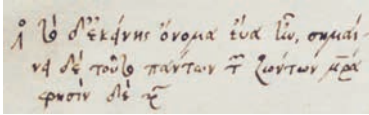 τὸ δ' ἐκείνης ὄνομα εὔα ἦν, σημαί-
νει δὲ τοῦτο πάντων τῶν ζώντων μρα
φησὶν δὲ